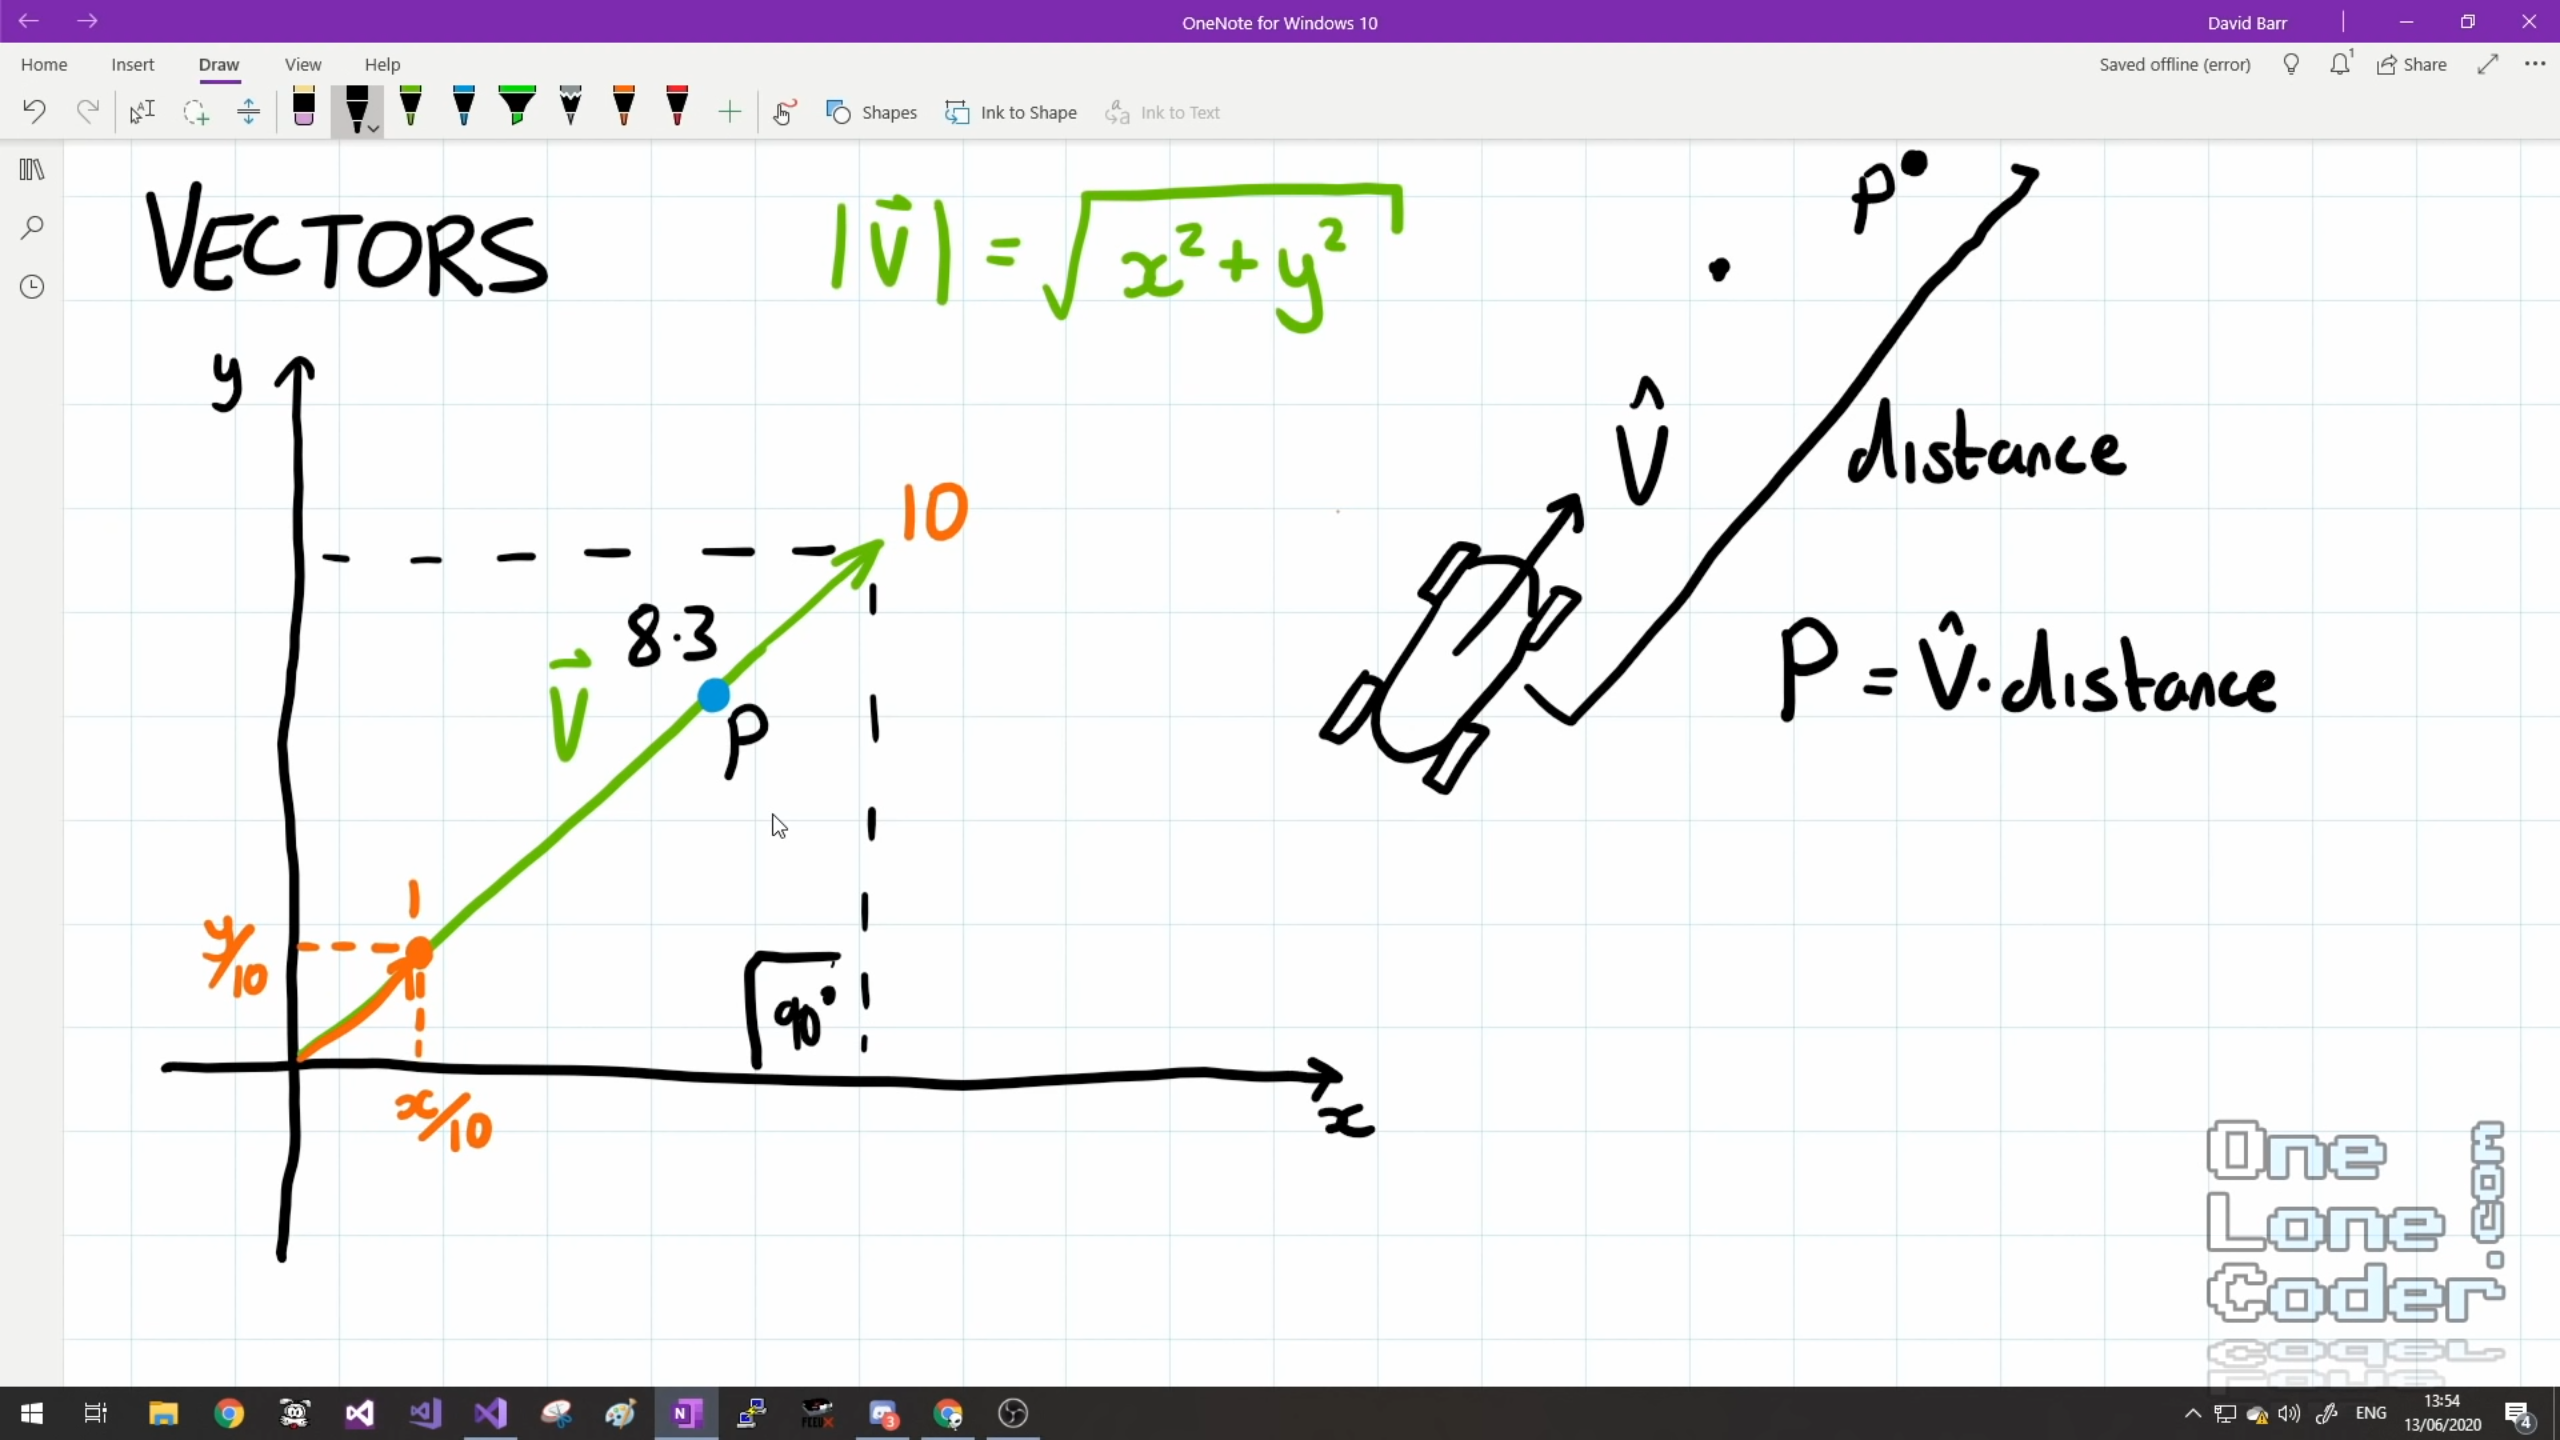 OneNote for Windows 10
David Barr
Home Insert Draw View Help
Saved offline (error)
1
Share
Shapes
Ink to Shape
Ink to Text
VECTORS
|V⃗| = √x² + y²
P
y
V̂
distance
10
8.3
V⃗
P
P = V̂·distance
1
y/10
90°
x/10
x
One
Lone
Coder
.com
3
ENG
13:54
13/06/2020
4